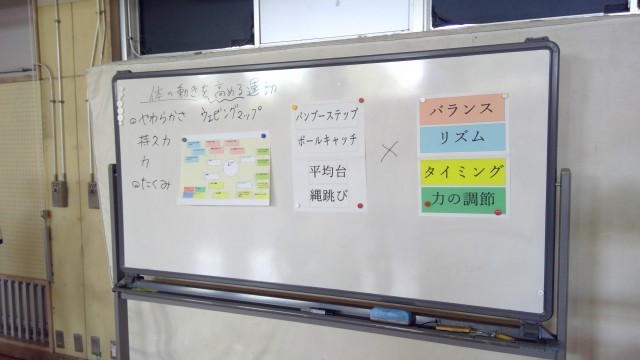 体の動きを高める運動
◎やわらかさ
持久力
力
◎たくみ
ウェビングマップ
バンブーステップ
ボールキャッチ
平均台
縄跳び
×
バランス
リズム
タイミング
力の調節